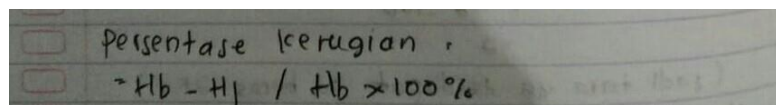 Persentase kerugian.
= Hb - Hj / Hb × 100%